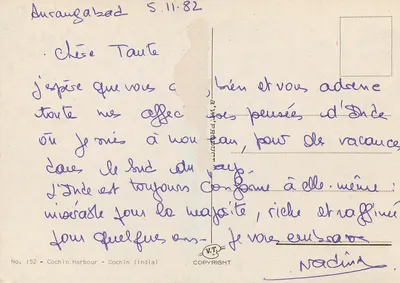 Aurangabad 5.11.82
Chère Tante
j'espère que vous bien et vous adresse
toute mes pensées d'Inde
où je suis à nouveau, pour des vacances
dans le Sud du pays.
L'Inde est toujours conforme à elle-même :
misérable pour la majorité, riche et raffinée
pour quelques uns - Je vous embrasse
Nadine
No. 152 - Cochin Harbour - Cochin (India)
V.T.
COPYRIGHT